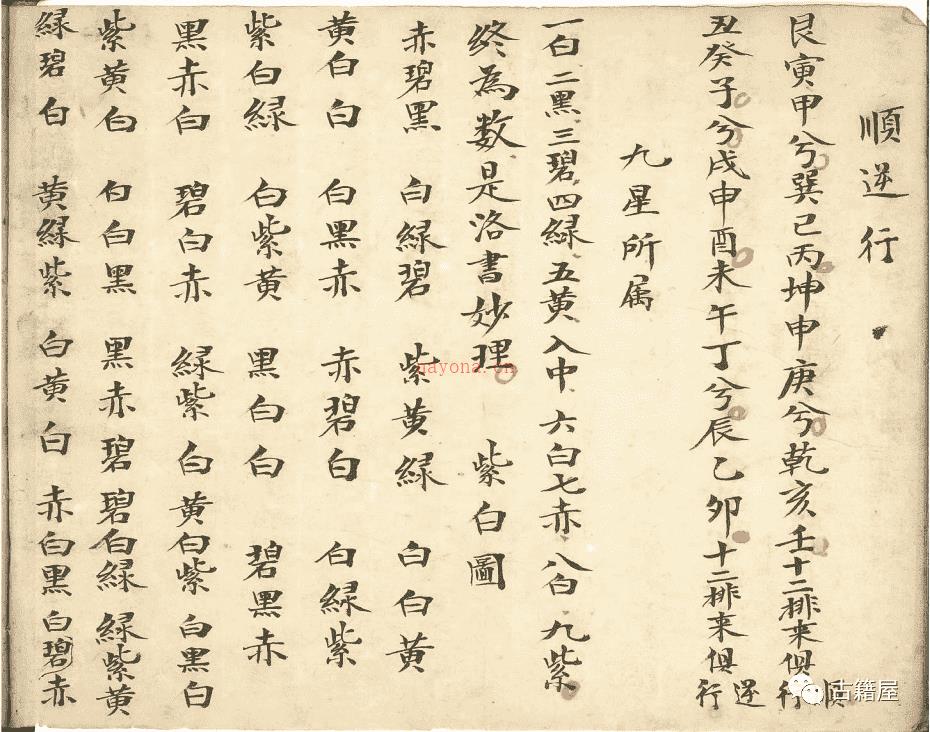 順逆行
艮寅甲兮巽巳丙坤申庚兮乾亥壬十二排来俱順行
丑癸子兮戌申酉未午丁兮辰乙卯十二排来俱逆行
九星所属
一白二黑三碧四緑五黄入中六白七赤八白九紫
終為数是洛書妙理 紫白圖
赤碧黑 白緑碧 紫黄緑 白白黄
黄白白 白黑赤 赤碧白 白緑紫
紫白緑 白紫黄 黑白白 碧黑赤
黑赤白 碧白赤 緑紫白 黄白紫 白黑白
紫黄白 白白黑 黑赤碧 碧白緑 緑紫黄
緑碧白 黄緑紫 白黄白 赤白黑 白碧赤
nayona.cn
古籍屋